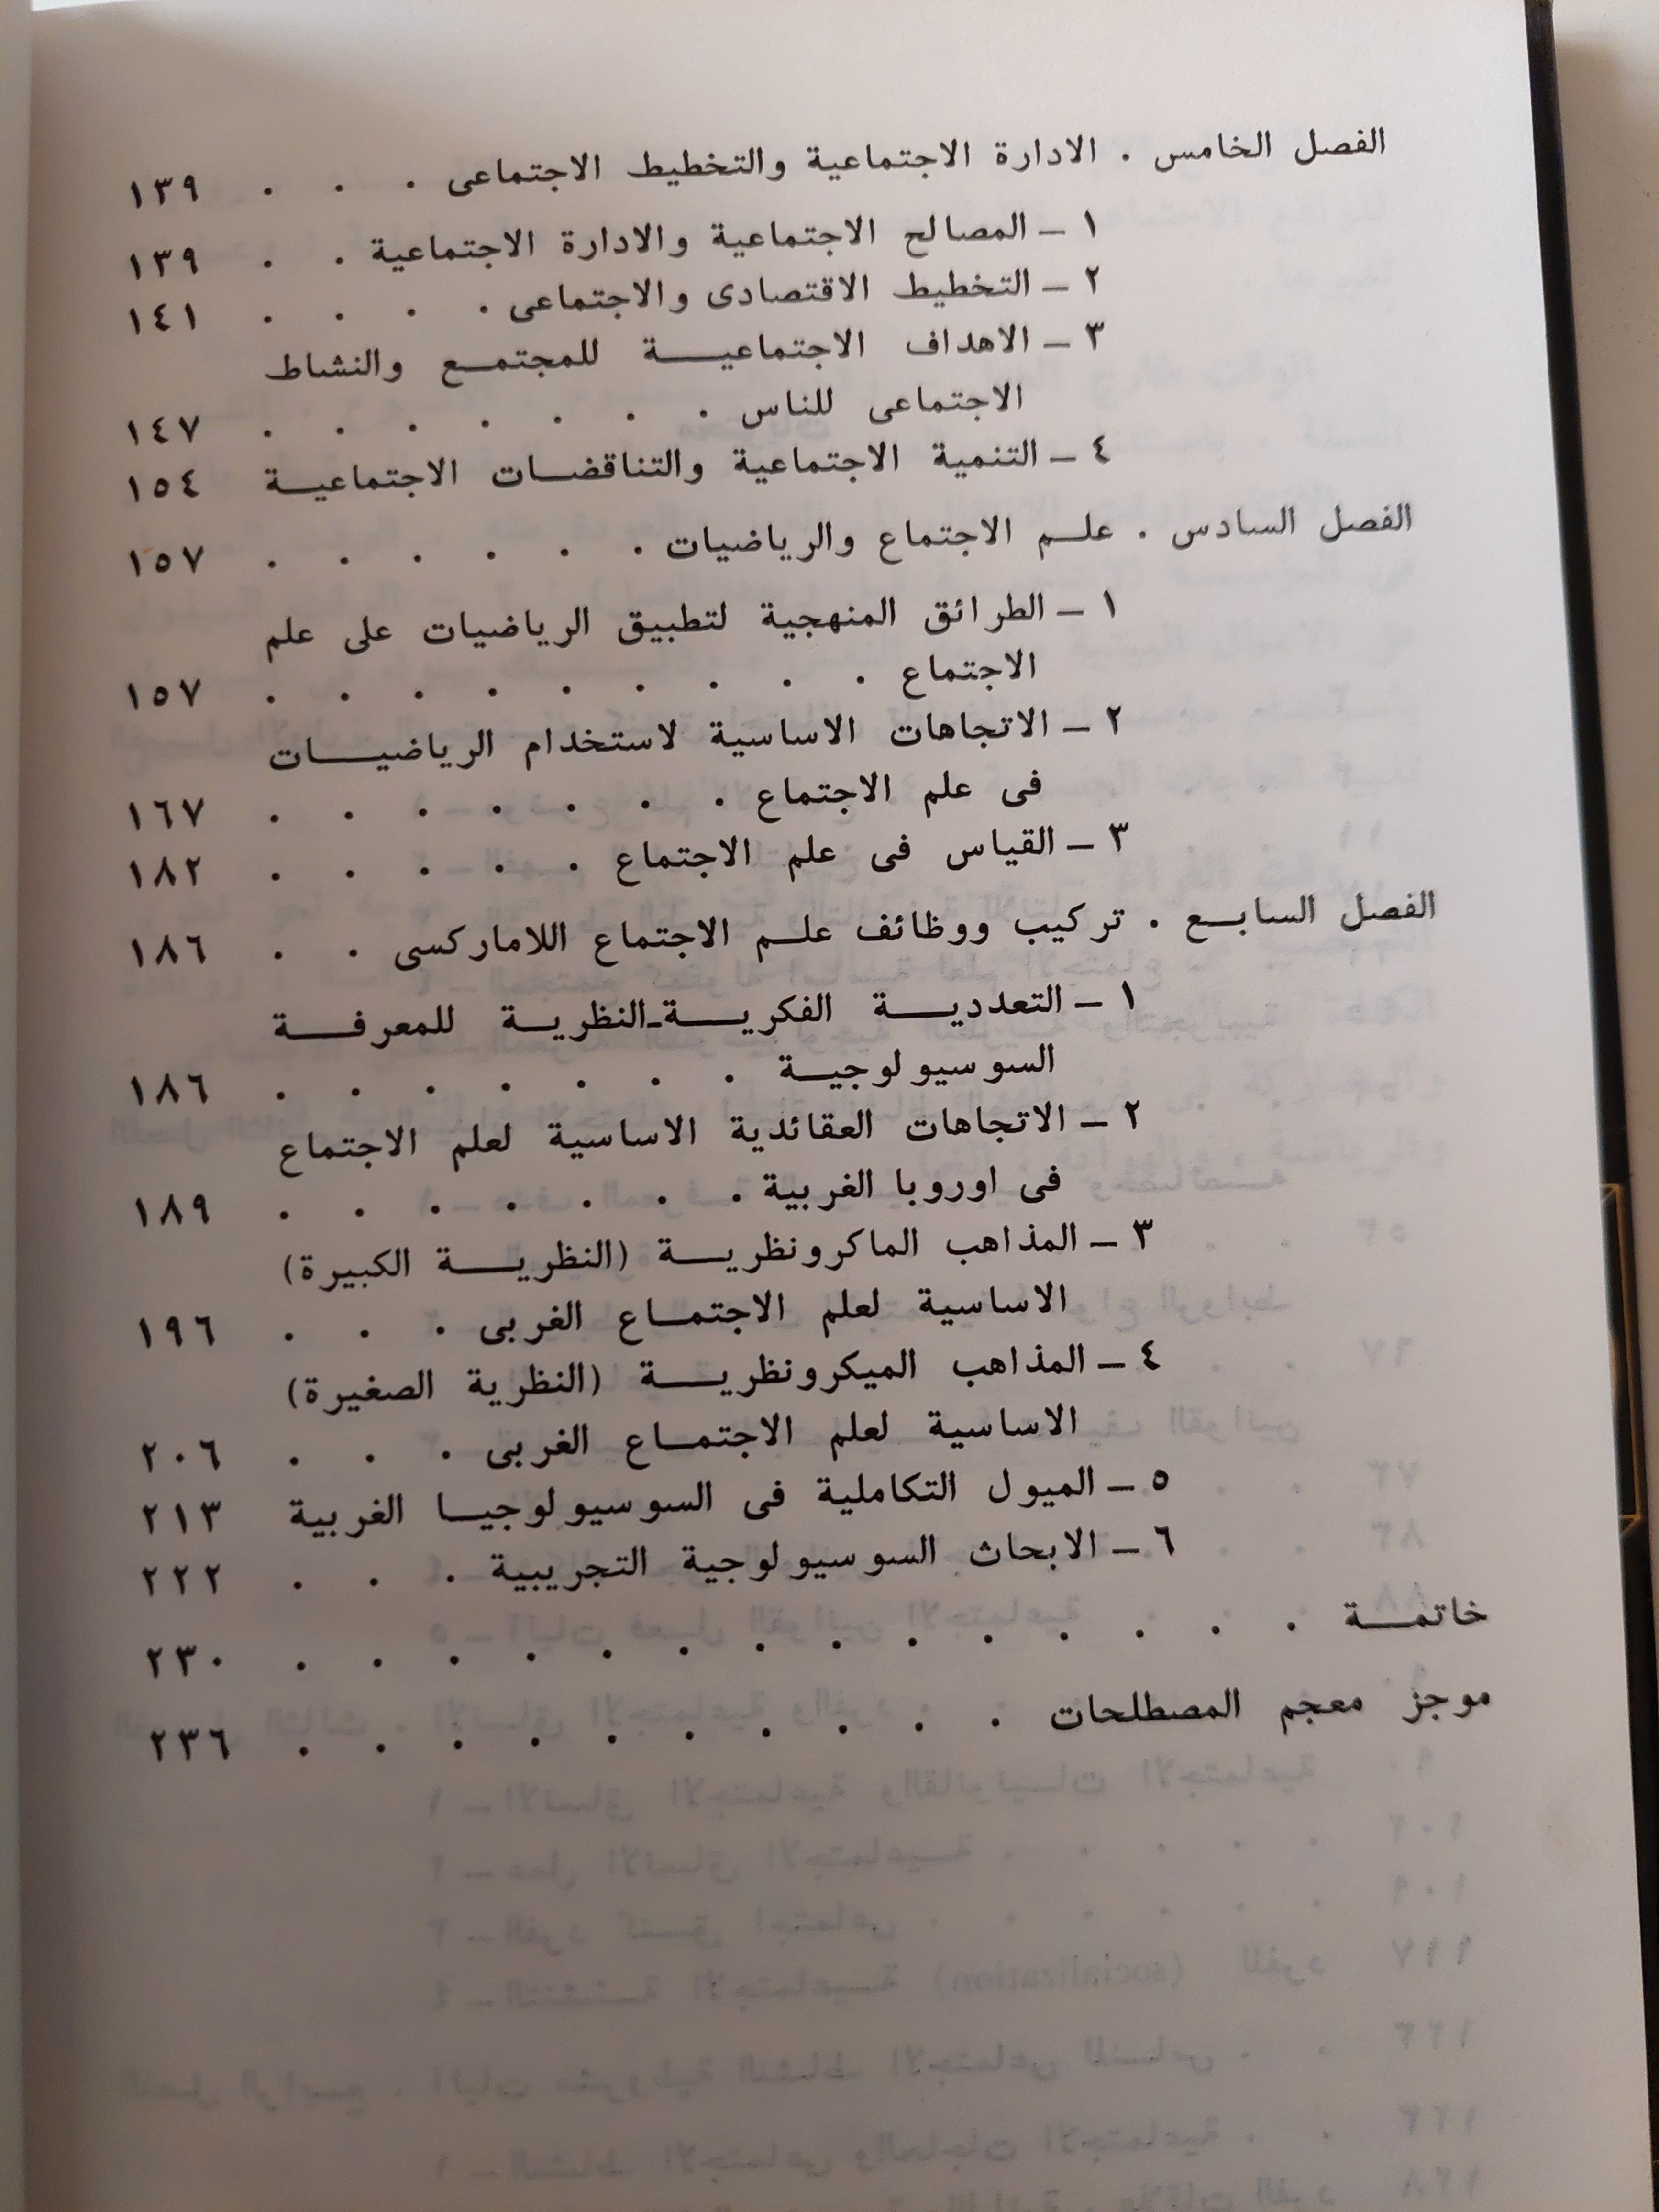 الفصل الخامس . الادارة الاجتماعية والتخطيط الاجتماعى . . . ١٣٩
١ — المصالح الاجتماعية والادارة الاجتماعية . . ١٣٩
٢ — التخطيط الاقتصادى والاجتماعى . . . . ١٤١
٣ — الاهداف الاجتماعيــة للمجتمــع والنشاط
الاجتماعى للناس . . . . . . . ١٤٧
٤ — التنمية الاجتماعية والتناقضــات الاجتماعيــة ١٥٤
الفصل السادس . علــم الاجتماع والرياضيات . . . . . . ١٥٧
١ — الطرائق المنهجية لتطبيق الرياضيات على علم
الاجتماع . . . . . . . . . ١٥٧
٢ — الاتجاهات الاساسية لاستخدام الرياضيــات
فى علم الاجتماع . . . . . . . ١٦٧
٣ — القياس فى علم الاجتماع . . . . . ١٨٢
الفصل السابــع . تركيب ووظائف علــم الاجتماع اللاماركسى . . ١٨٦
١ — التعدديــة الفكريــة-النظريــة للمعرفــة
السوسيولوجيــة . . . . . . . ١٨٦
٢ — الاتجاهات العقائدية الاساسية لعلم الاجتماع
فى اوروبا الغربية . . . . . . . ١٨٩
٣ — المذاهب الماكرونظريــة (النظريــة الكبيرة)
الاساسية لعلم الاجتمــاع الغربى . . . ١٩٦
٤ — المذاهب الميكرونظريــة (النظرية الصغيرة)
الاساسية لعلم الاجتمــاع الغربى . . . ٢٠٦
٥ — الميول التكاملية فى السوسيولوجيــا الغربية ٢١٣
٦ — الابحاث السوسيولوجية التجريبية . . . ٢٢٢
خاتمــة . . . . . . . . . . . . . . ٢٣٠
موجز معجم المصطلحات . . . . . . . . . . ٢٣٦